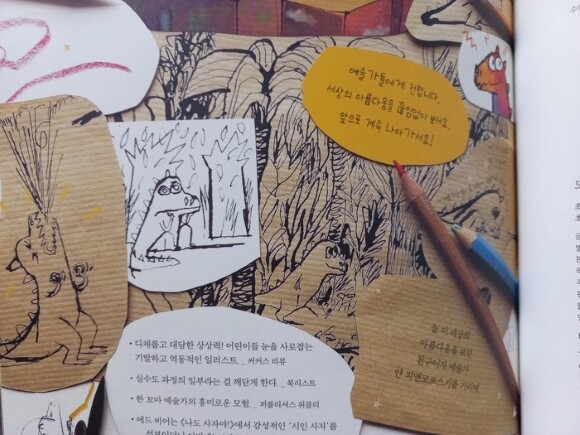 예술가들에게 전합니다.
세상의 아름다움을 끊임없이 보세요.
앞으로 계속 나아가세요!
늘 이 세상의
아름다움을 보던
친구이자 예술가
얀 피엔코프스키를 기리며
• 다채롭고 대담한 상상력! 어린이들 눈을 사로잡는
기발하고 역동적인 일러스트 _ 커커스 리뷰
• 실수도 과정의 일부라는 걸 깨닫게 한다. _ 북리스트
• 한 꼬마 예술가의 흥미로운 모험. _ 퍼블리셔스 위클리
• 에드 비어는 《나도 사자야!》에서 감성적인 ‘시인 사자’를